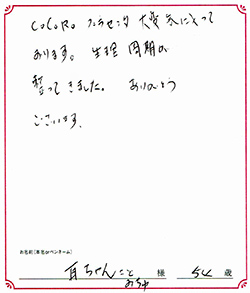 CoCoRo プラセンタ 大変気に入って
おります。 生理 周期が
整ってきました。 ありがとう
ございます。
お名前(本名orペンネーム)
耳ちゃんこと
みちゅ 様 54 歳